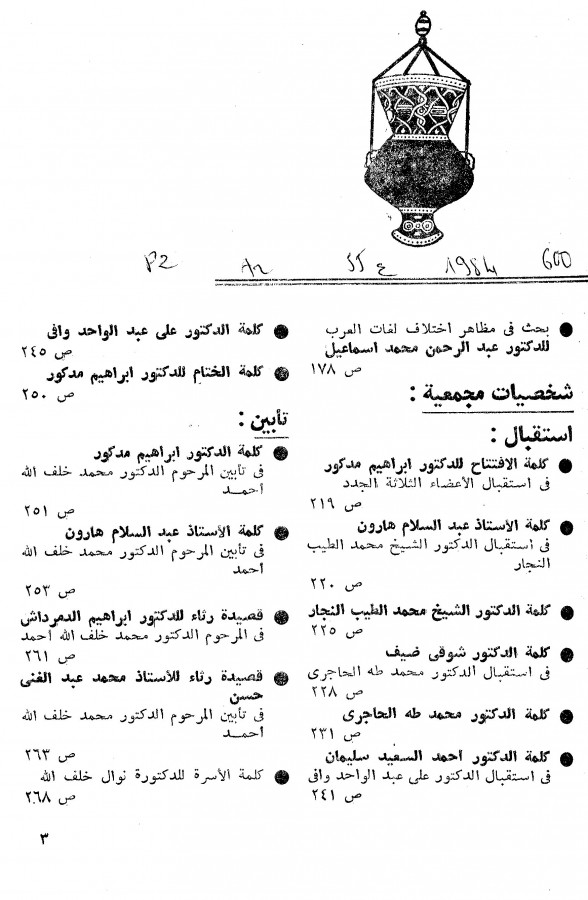 P2 A2 ع 55 1984 600
● بحث فى مظاهر اختلاف لغات العرب
للدكتور عبد الرحمن محمد اسماعيل
ص ١٧٨
شخصيات مجمعية :
استقبال :
● كلمة الافتتاح للدكتور ابراهيم مدكور
فى استقبال الأعضاء الثلاثة الجدد
ص ٢١٩
● كلمة الأستاذ عبد السلام هارون
فى استقبال الدكتور الشيخ محمد الطيب
النجار
ص ٢٢٠
● كلمة الدكتور الشيخ محمد الطيب النجار
ص ٢٢٥
● كلمة الدكتور شوقى ضيف
فى استقبال الدكتور محمد طه الحاجرى
ص ٢٢٨
● كلمة الدكتور محمد طه الحاجرى
ص ٢٣١
● كلمة الدكتور احمد السعيد سليمان
فى استقبال الدكتور على عبد الواحد وافى
ص ٢٤١
● كلمة الدكتور على عبد الواحد وافى
ص ٢٤٥
● كلمة الختام للدكتور ابراهيم مدكور
ص ٢٥٠
تأبين :
● كلمة الدكتور ابراهيم مدكور
فى تأبين المرحوم الدكتور محمد خلف الله
أحمـد
ص ٢٥١
● كلمة الأستاذ عبد السلام هارون
فى تأبين المرحوم الدكتور محمد خلف الله
أحمد
ص ٢٥٣
● قصيدة رثاء للدكتور ابراهيم الدمرداش
فى المرحوم الدكتور محمد خلف الله احمد
ص ٢٦١
● قصيدة رثاء للأستاذ محمد عبد الغنى
حسن
فى تأبين المرحوم الدكتور محمد خلف الله
أحمـد
ص ٢٦٣
● كلمة الأسرة للدكتورة نوال خلف الله
ص ٢٦٨
٣